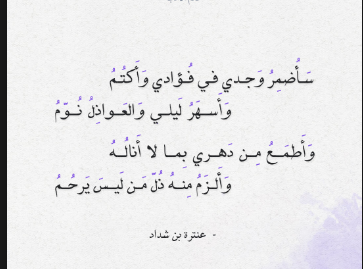 سَأُضمِرُ وَجدي في فُؤادي وَأَكتُمُ
وَأَسهَرُ لَيلي وَالعَواذِلُ نُوَّمُ
وَأَطمَعُ مِن دَهري بِما لا أَنالُهُ
وَأَلزَمُ مِنهُ ذُلَّ مَن لَيسَ يَرحُمُ
- عنترة بن شداد